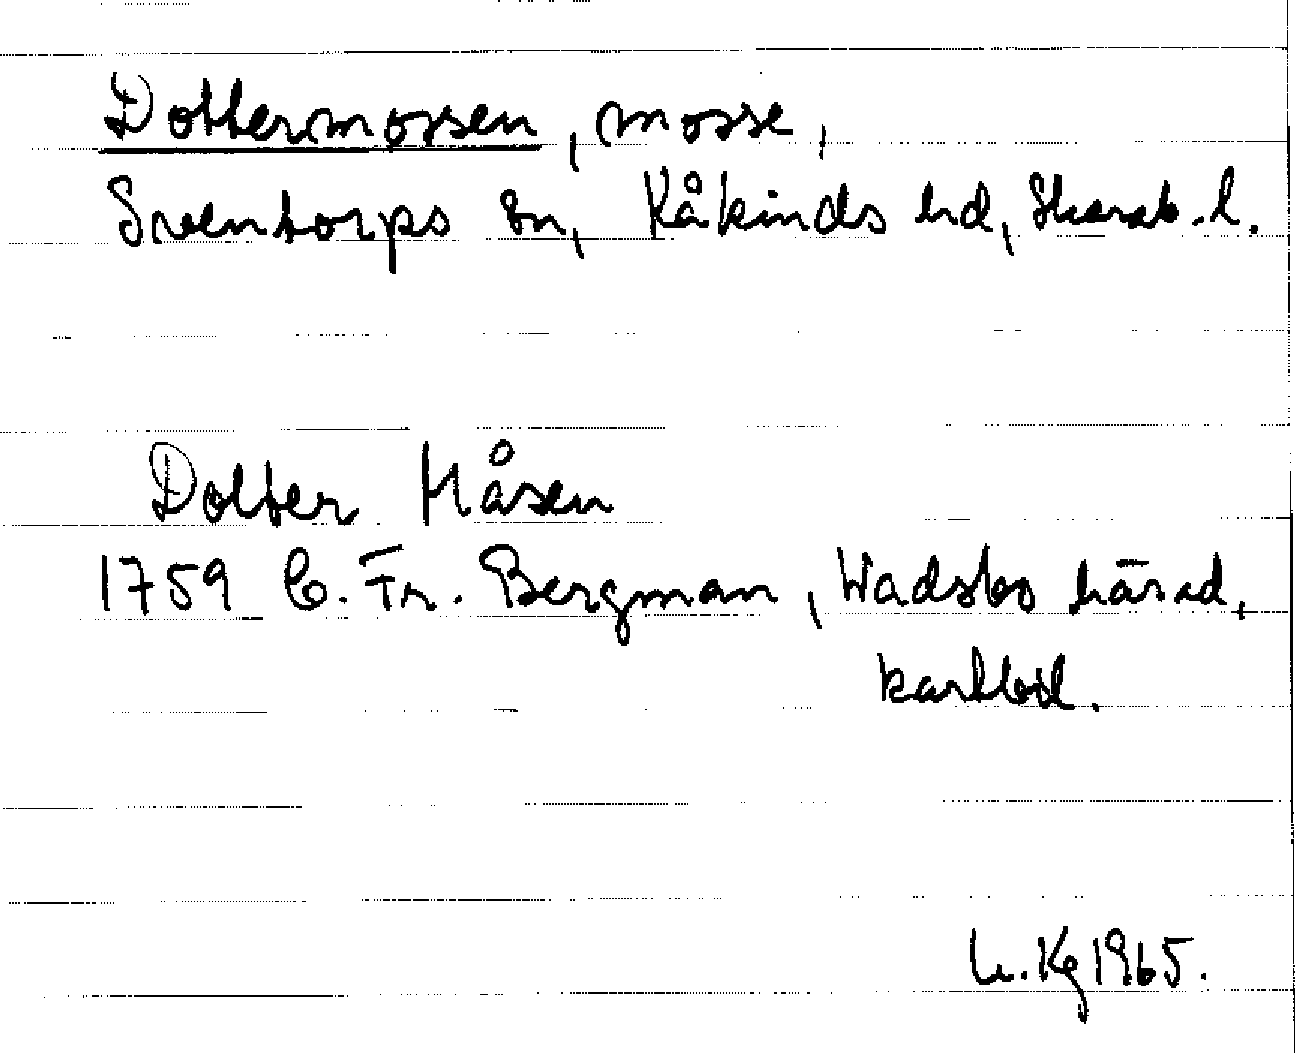 Dottermossen, mosse,
Sventorps sn, Kåkinds hd, Skarab. l.
Dotter Måsen
1759 C. Fr. Bergman, Wadsbo härad,
kartbl.
L. Kg 1965.